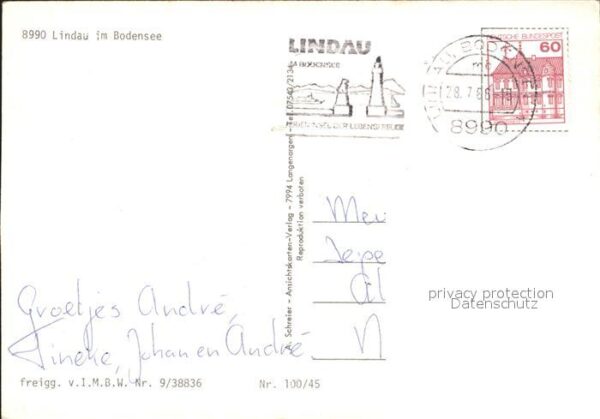 8990 Lindau im Bodensee
LINDAU
BODENSEE
INSEL DER LEBENSFREUDE
LINDAU, BODENSEE
28.7.86
8990
DEUTSCHE BUNDESPOST
60
Schreier - Ansichtskarten-Verlag - 7994 Langenargen - Tel. 07543/2134
Reproduktion verboten
Groetjes André,
Tineke, Johan en André
privacy protection
Datenschutz
freigg. v.I.M.B.W. Nr. 9/38836
Nr. 100/45